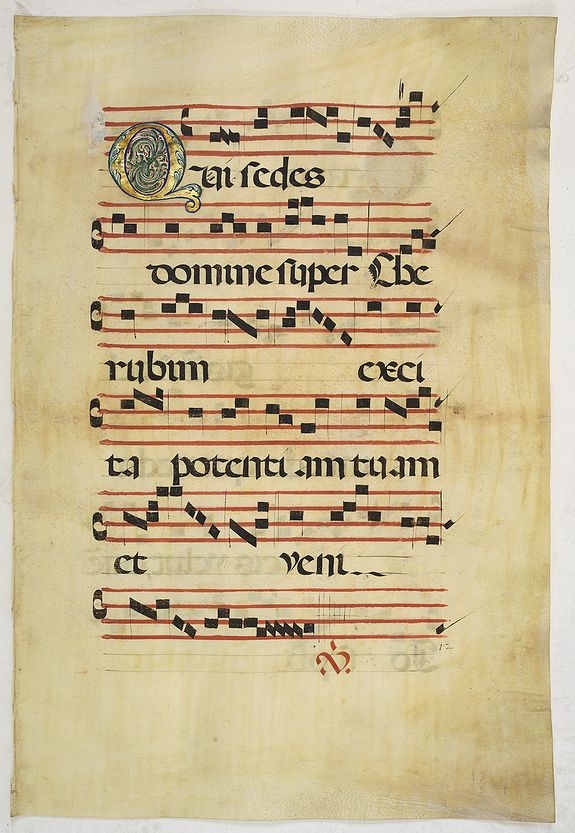 Qui sedes
domine super Che
rubim exci
ta potenti am tu am
et veni
℣.
12